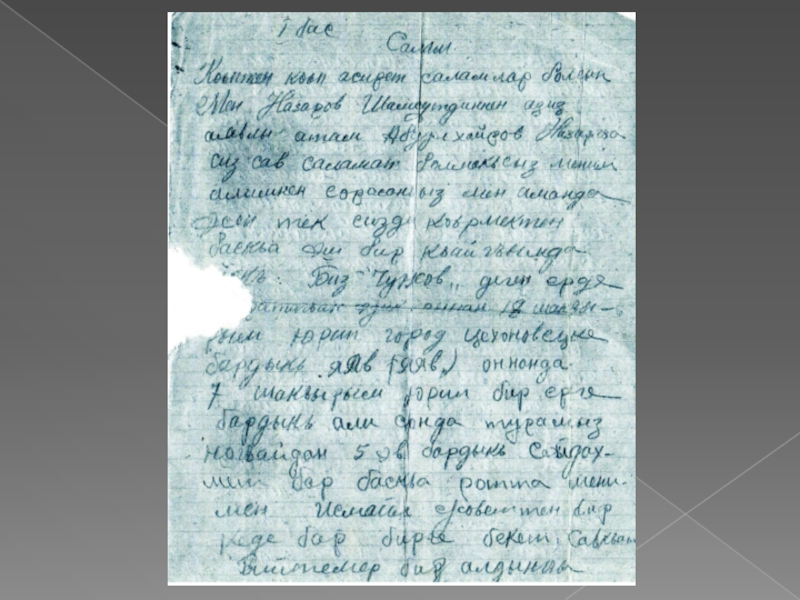 1 бас
Салам
Коьптен коьп асирет саламлар болсын
Мен Назаров Шамсутдиннен азиз
атам Абдулхайров Назарга
сиз сав саламат болмакьсыз меним
алимнен сорасангыз мен аманда
эсен тек сизди коьрмектен
баскьа эш бир кьайгъымда
Биз Чужов,, деген ерде
оннан 18
юрип город Цехоновецке
бардыкь яяв (яяв,) оннонда
7 шакъырым юрип бир ерге
бардыкь али сонда турамыз
Ногъайдан 5 яв бардыкь Сайдах-
мет бар баскьа ротта меним
мен Исмаил Советтен бир
реде бар бирге бекет, Савкъат
Бийтемер биз алдынгъы